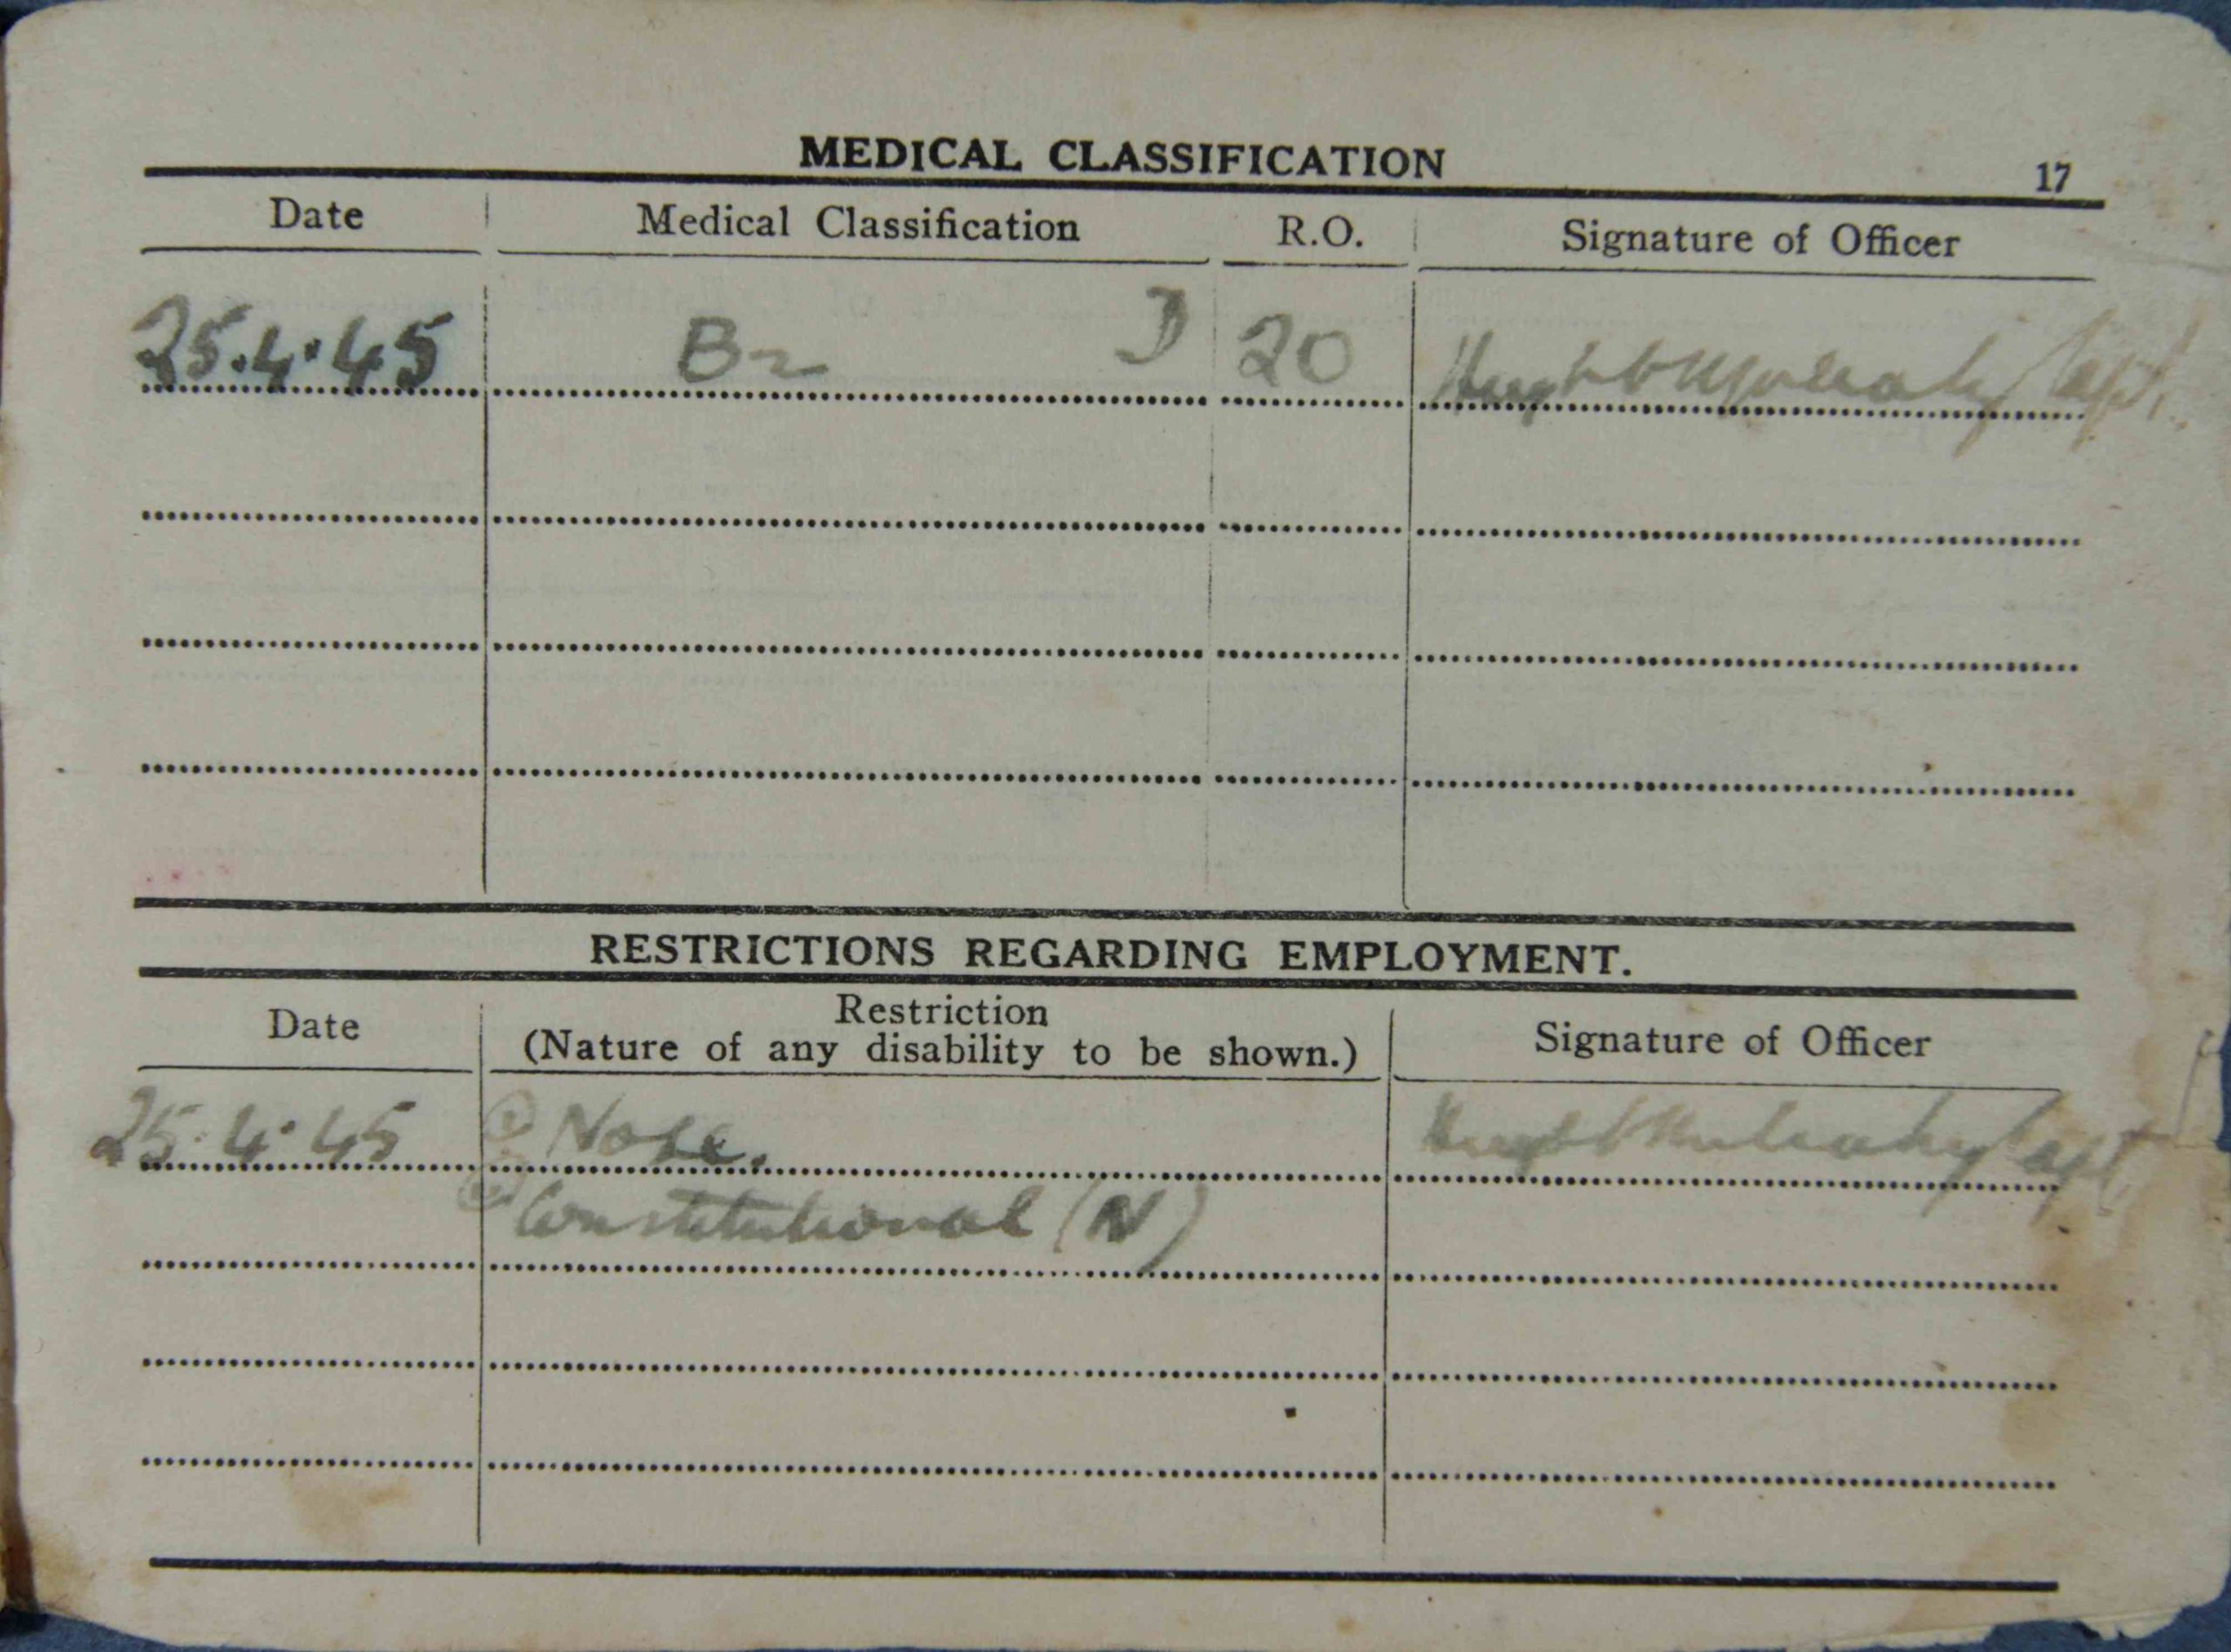 MEDICAL CLASSIFICATION
17
Date Medical Classification R.O. Signature of Officer
25.4.45 B2 20 Capt.
RESTRICTIONS REGARDING EMPLOYMENT.
Date Restriction (Nature of any disability to be shown.) Signature of Officer
25.4.45 ① Nose. Hugh Mulcahy Capt.
② Constitutional (N)